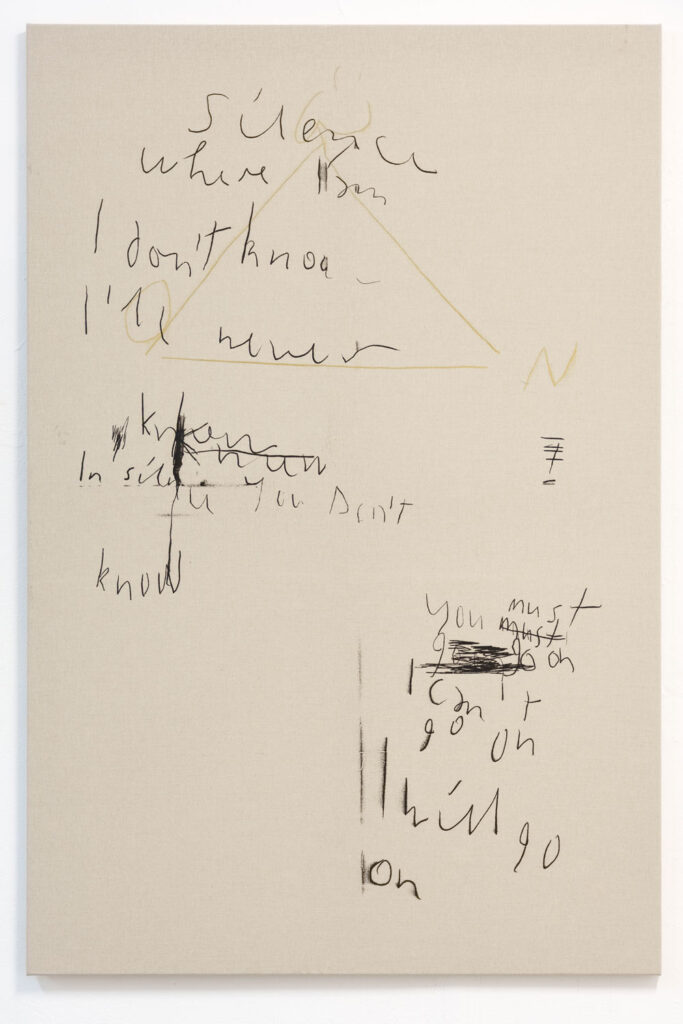 silence
where I am
I don't know
I'll never
N
know
know
In silence you Don't
know
you must
must
go on
I can't
go on
I will go
on